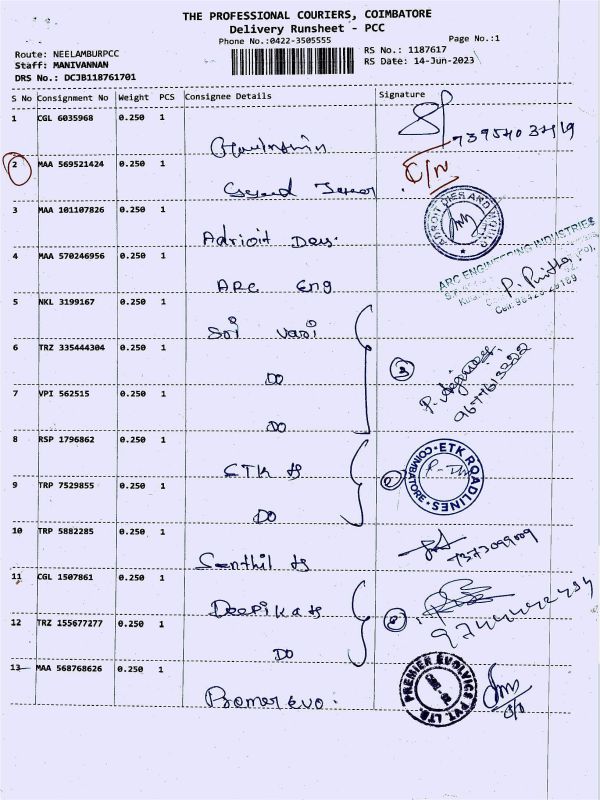 THE PROFESSIONAL COURIERS, COIMBATORE
Delivery Runsheet - PCC
Phone No.:0422-3505555
Page No.:1
Route: NEELAMBURPCC
RS No.: 1187617
Staff: MANIVANNAN
RS Date: 14-Jun-2023
DRS No.: DCJB118761701
S No Consignment No Weight PCS Consignee Details Signature
1 CGL 6035968 0.250 1
2 MAA 569521424 0.250 1 C/N
3 MAA 101107826 0.250 1
ADROIT DIES AND MOULD
4 MAA 570246956 0.250 1
ARC Eng
ARC ENGINEERING INDUSTRIES
5 NKL 3199167 0.250 1
Sri Vari
6 TRZ 335444304 0.250 1
DO
3
7 VPI 562515 0.250 1
DO
8 RSP 1796862 0.250 1
ETK ts
ETK ROADLINES
COIMBATORE
9 TRP 7529855 0.250 1
DO
10 TRP 5882285 0.250 1
Senthil ts
11 CGL 1507861 0.250 1
Deepika ts
12 TRZ 155677277 0.250 1
DO
13 MAA 568768626 0.250 1
PREMIER EVOLVICS PVT. LTD.